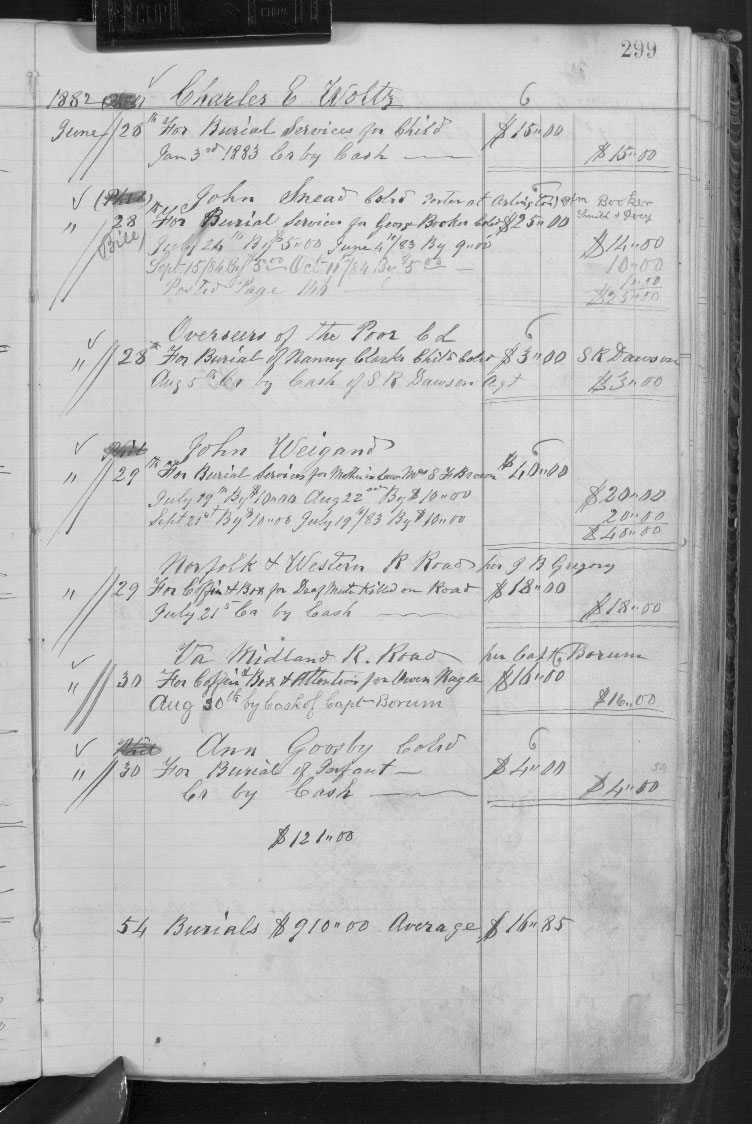 CLIP
299
1882 Charles E Woltz 6
June 28th For Burial Services for Child $15"00
Jan 3rd 1883 Cr by Cash $15"00
John Snead Cold Porter at Arlington 6 Booker
" 28th For Burial Services for George Booker Cold $25"00 Smith &
Bill
July 24th By $5"00 June 4th/83 By 9"00 $14"00
Sept 15/84 By $5"00 Oct 11th/84 By $5"00 10"00
Posted Page 146 1"00
$25"00
Overseers of the Poor Cd 6
" 28th For Burial of Nanny Clarks Child Cold $3"00 S R Dawson
Aug 5th Cr by Cash of S R Dawson Agt $3"00
John Weigand 6
" 29th For Burial Services for Mother in Law Mrs S F Brown $40"00
July 19th By $10"00 Aug 22nd By $10"00 $20"00
Sept 21st By $10"00 July 19th/83 By $10"00 20"00
$40"00
Norfolk & Western R Road per J B Gregory
" 29 For Coffin & Box for Deaf Mute Killed on Road $18"00
July 21st Cr by Cash $18"00
Va Midland R. Road per Capt Borum
" 30 For Coffin Box & Attention for Owen Nagle $16"00
Aug 30th by Cash of Capt Borum $16"00
Ann Goosby Cold 6
" 30 For Burial of Infant $4"00
Cr by Cash $4"00
54
$121"00
54 Burials $910"00 Average $16"85